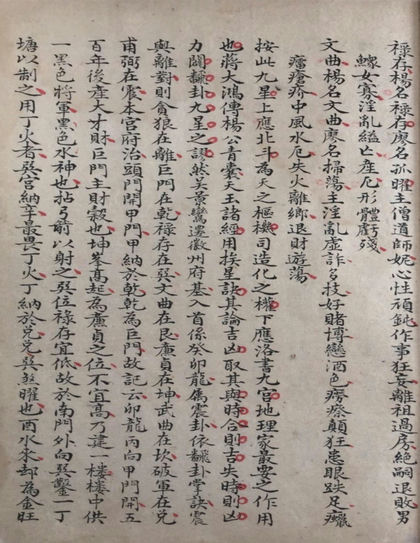 祿存楊名祿存廖名孤曜主僧道師妮心性頑鈍作事狂妄離祖過房絶嗣退敗男
鰥女寡淫亂縊亡産厄形體虧殘
文曲楊名文曲廖名掃蕩主淫亂虛詐多技好賭博戀酒色癆瘵顛狂患眼跌足癱
瘟瘡疥中風水厄失火離鄉退財遊蕩
按此九星上應北斗為天之樞機司造化之權下應洛書九宮地理家最要之作用
也蔣大鴻傳楊公青囊天玉諸經用挨星訣其論吉凶取其與時合則吉失時則凶
力闢飜卦九星之謬然吳景鸞遷徽州府基入首係癸卯龍屬震卦依飜卦掌訣震
與離對則貪狼在離巨門在乾祿存在巽文曲在艮廉貞在坤武曲在坎破軍在兌
甫弼在震本宮府治頭門開甲門甲納於乾乾為巨門故記云卯龍丙向甲門開五
百年後産大才財巨門主財穀也坤峯高起為廉貞之位不宜高乃建一樓樓中供
一黑色將軍黑色水神也拈弓前以射之巽位祿存宜低故於南門外向巽鑿一丁
塘以制之用丁火者巽宮納辛最畏丁火丁納於兌兌巽煞曜也酉水來却為金旺